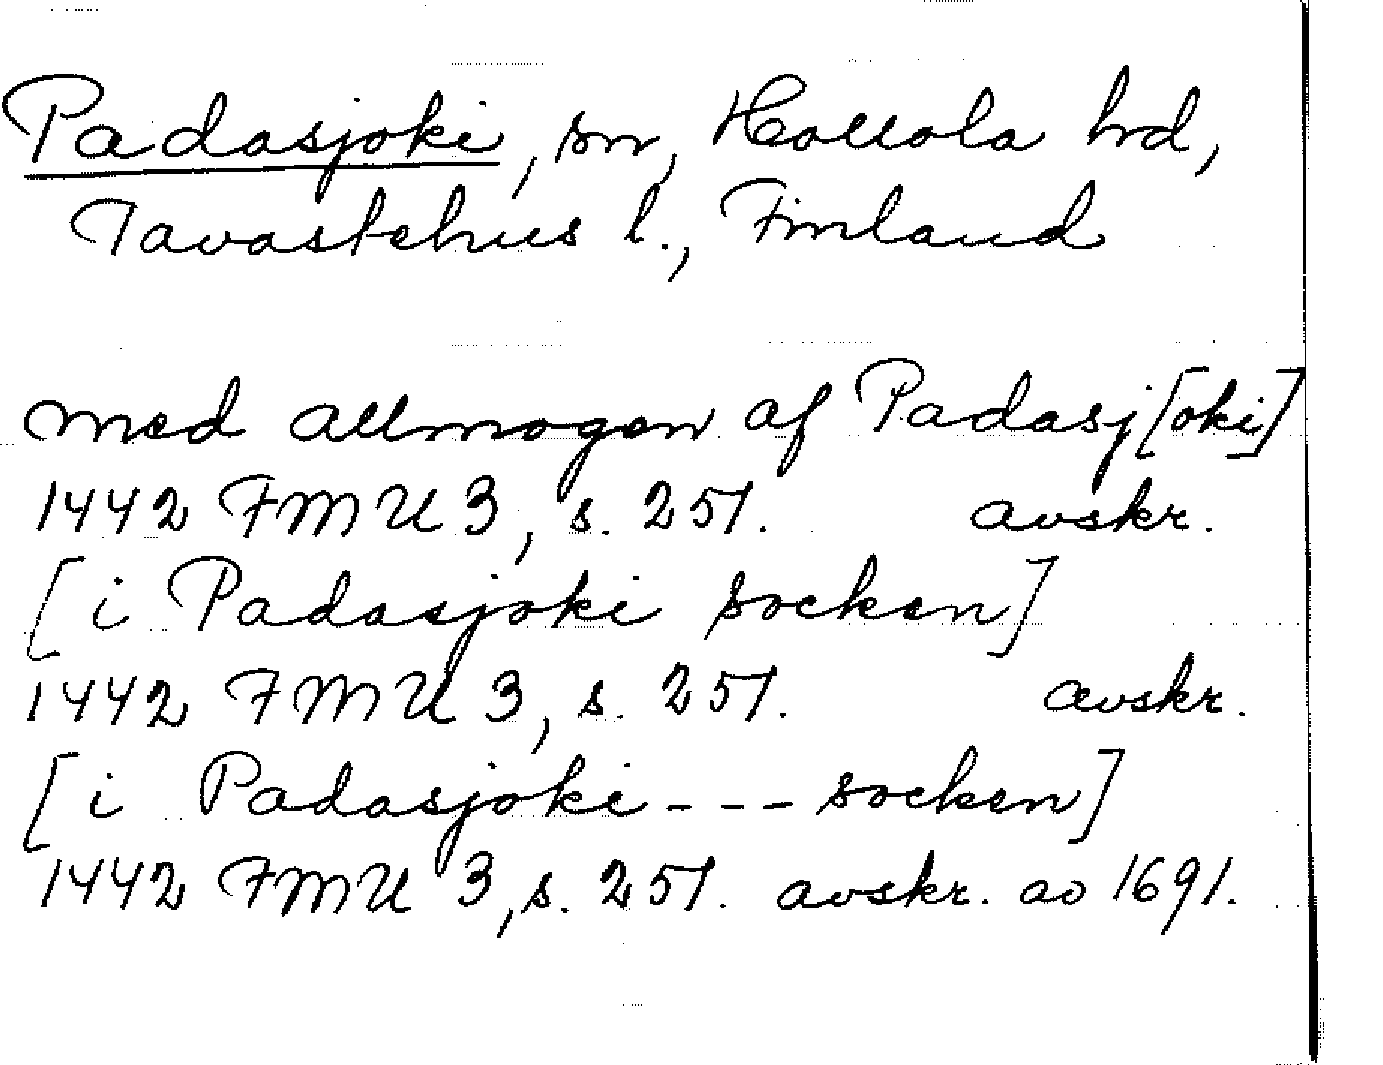 Padasjoki, sn, Hollola hrd,
Tavastehus l., Finland
med allmogen af Padasj[oki]
1442 FMU 3, s. 251. avskr.
[i Padasjoki socken]
1442 FMU 3, s. 251. avskr.
[i Padasjoki --- socken]
1442 FMU 3, s. 251. avskr. av 1691.